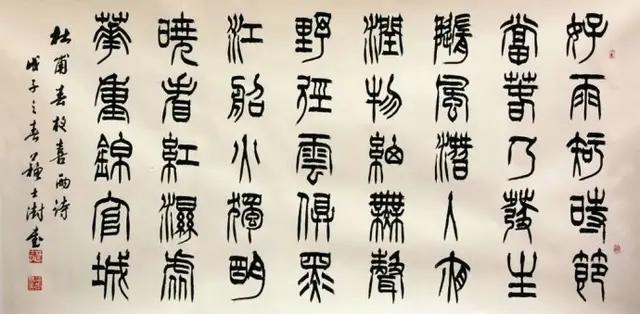 好雨知時節
當春乃發生
隨風潛入夜
潤物細無聲
野徑雲俱黑
江船火獨明
曉看紅濕處
華重錦官城
杜甫春夜喜雨诗
戊子之春蘇士澍書